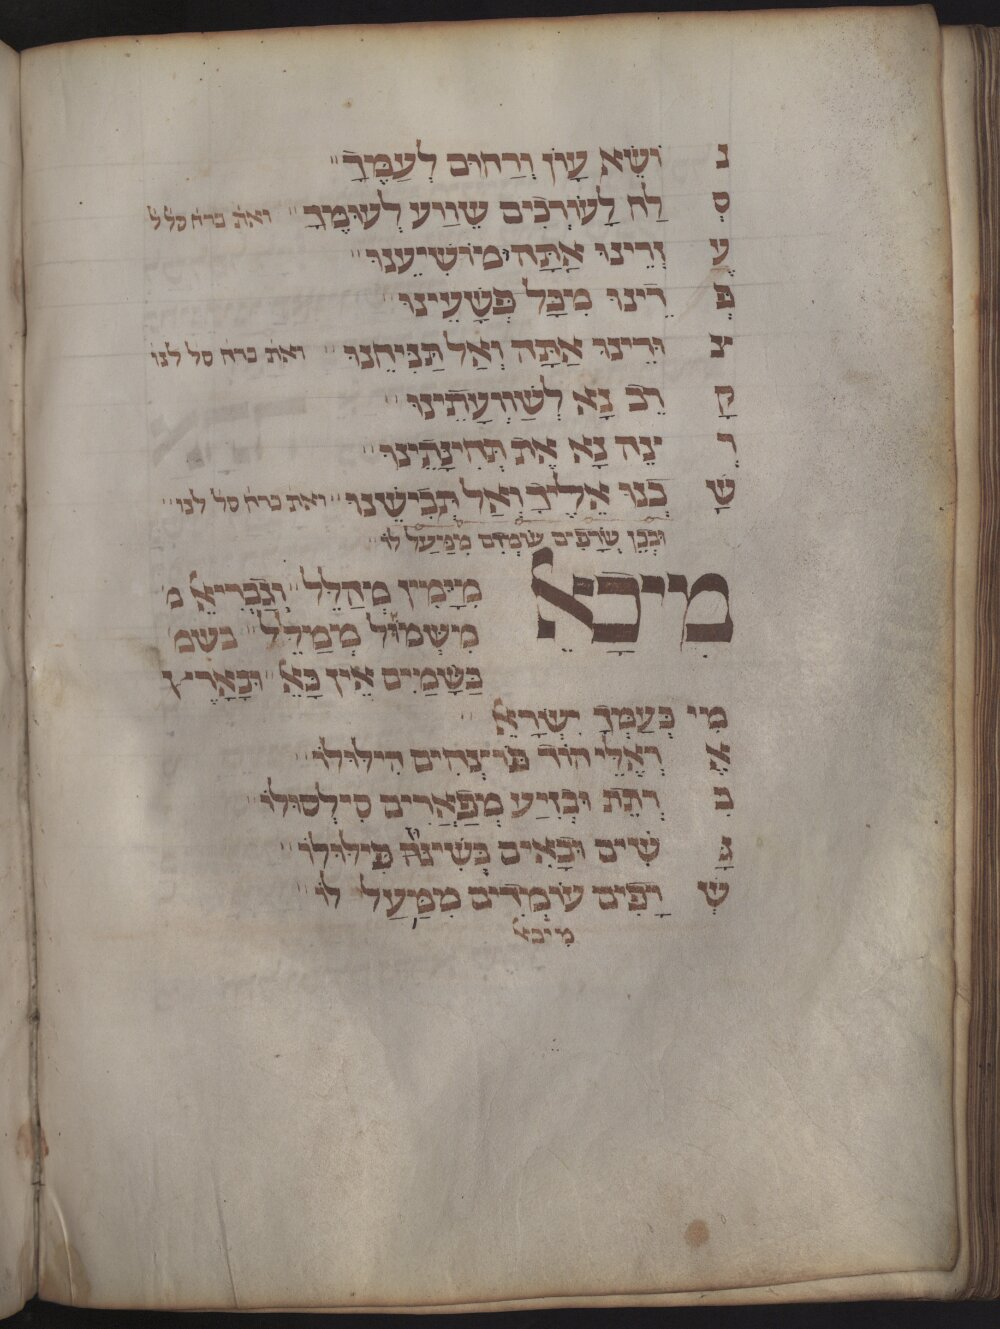 נ וֹשֵׂא עָוֹן וְרַחוּם לְעַמֶּךָ
סְ לַח לָעוֹרְכִים שֶׁוַוע לְעוּמֶךָ ואת ברח סל ל
עֶ זְרֵינוּ אַתָּה וּמוֹשִׁיעֵנוּ
פְּ דֵינוּ מִכָּל פְּשָׁעֵינוּ
צ וּרֵינוּ אַתָּה וְאַל תַּנִּיחֵנוּ ואת ברח סל לנו
קָ רֵב נָא לְשַׁוְועָתֵינוּ
רְ צֵה נָא אֶת תְּחִינָתֵינוּ
שַׁ בְנוּ אֵלֶיךָ וְאַל תְּבִישֵׁנוּ ואת ברח סל לנו
וּבְכֵן שְׂרָפִים עוֹמְדִים מִמַּעַל לוֹ
מִיכָאֵל
מִיָּמִין מְהַלֵּל וְגַבְרִיאֵל מ
מִשְּׂמֹאול מְמַלֵּל בשמ
בַּשָּׁמַיִם אֵין כָּאֵל וּבָאָרֶץ
מִי כְּעַמְּךָ יִשְׂרָאֵל
אֶ רְאֶלֵּי הוֹד פּוֹצְחִים הִילּוּלוֹ
בִּ רְתֵת וּבְזִיעַ מְפָאֲרִים סִילְסוּלוֹ
גָּ שִׁים וּבָאִים בְּשִׁינּוּן פִּילּוּלוֹ
שְׂ רָפִים עוֹמְדִים מִמַּעַל לוֹ
מיכאל